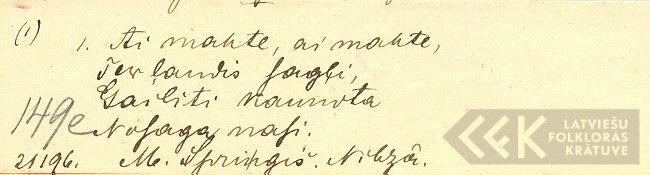 (1) 1. Ai mahte, ai mahte,
Tew laudis sagļi,
Gailiti kaunota
Nosaga nasi.
149e
21196. M. Spriņģis. Nihzā.
LATVIEŠU
FOLKLORAS
KRĀTUVE